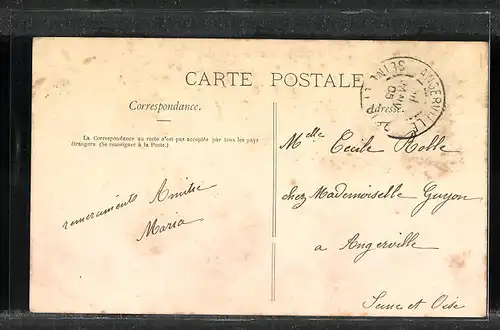 CARTE POSTALE
Correspondance.
Adresse.
La Correspondance au recto n'est pas acceptée par tous les pays
étrangers (Se renseigner à la Poste.)
ANGERVILLE
SEINE
05
remerciements Amitié
Maria
Melle Cecile Rolle
chez Mademoiselle Guyon
a Angerville
Seine et Oise